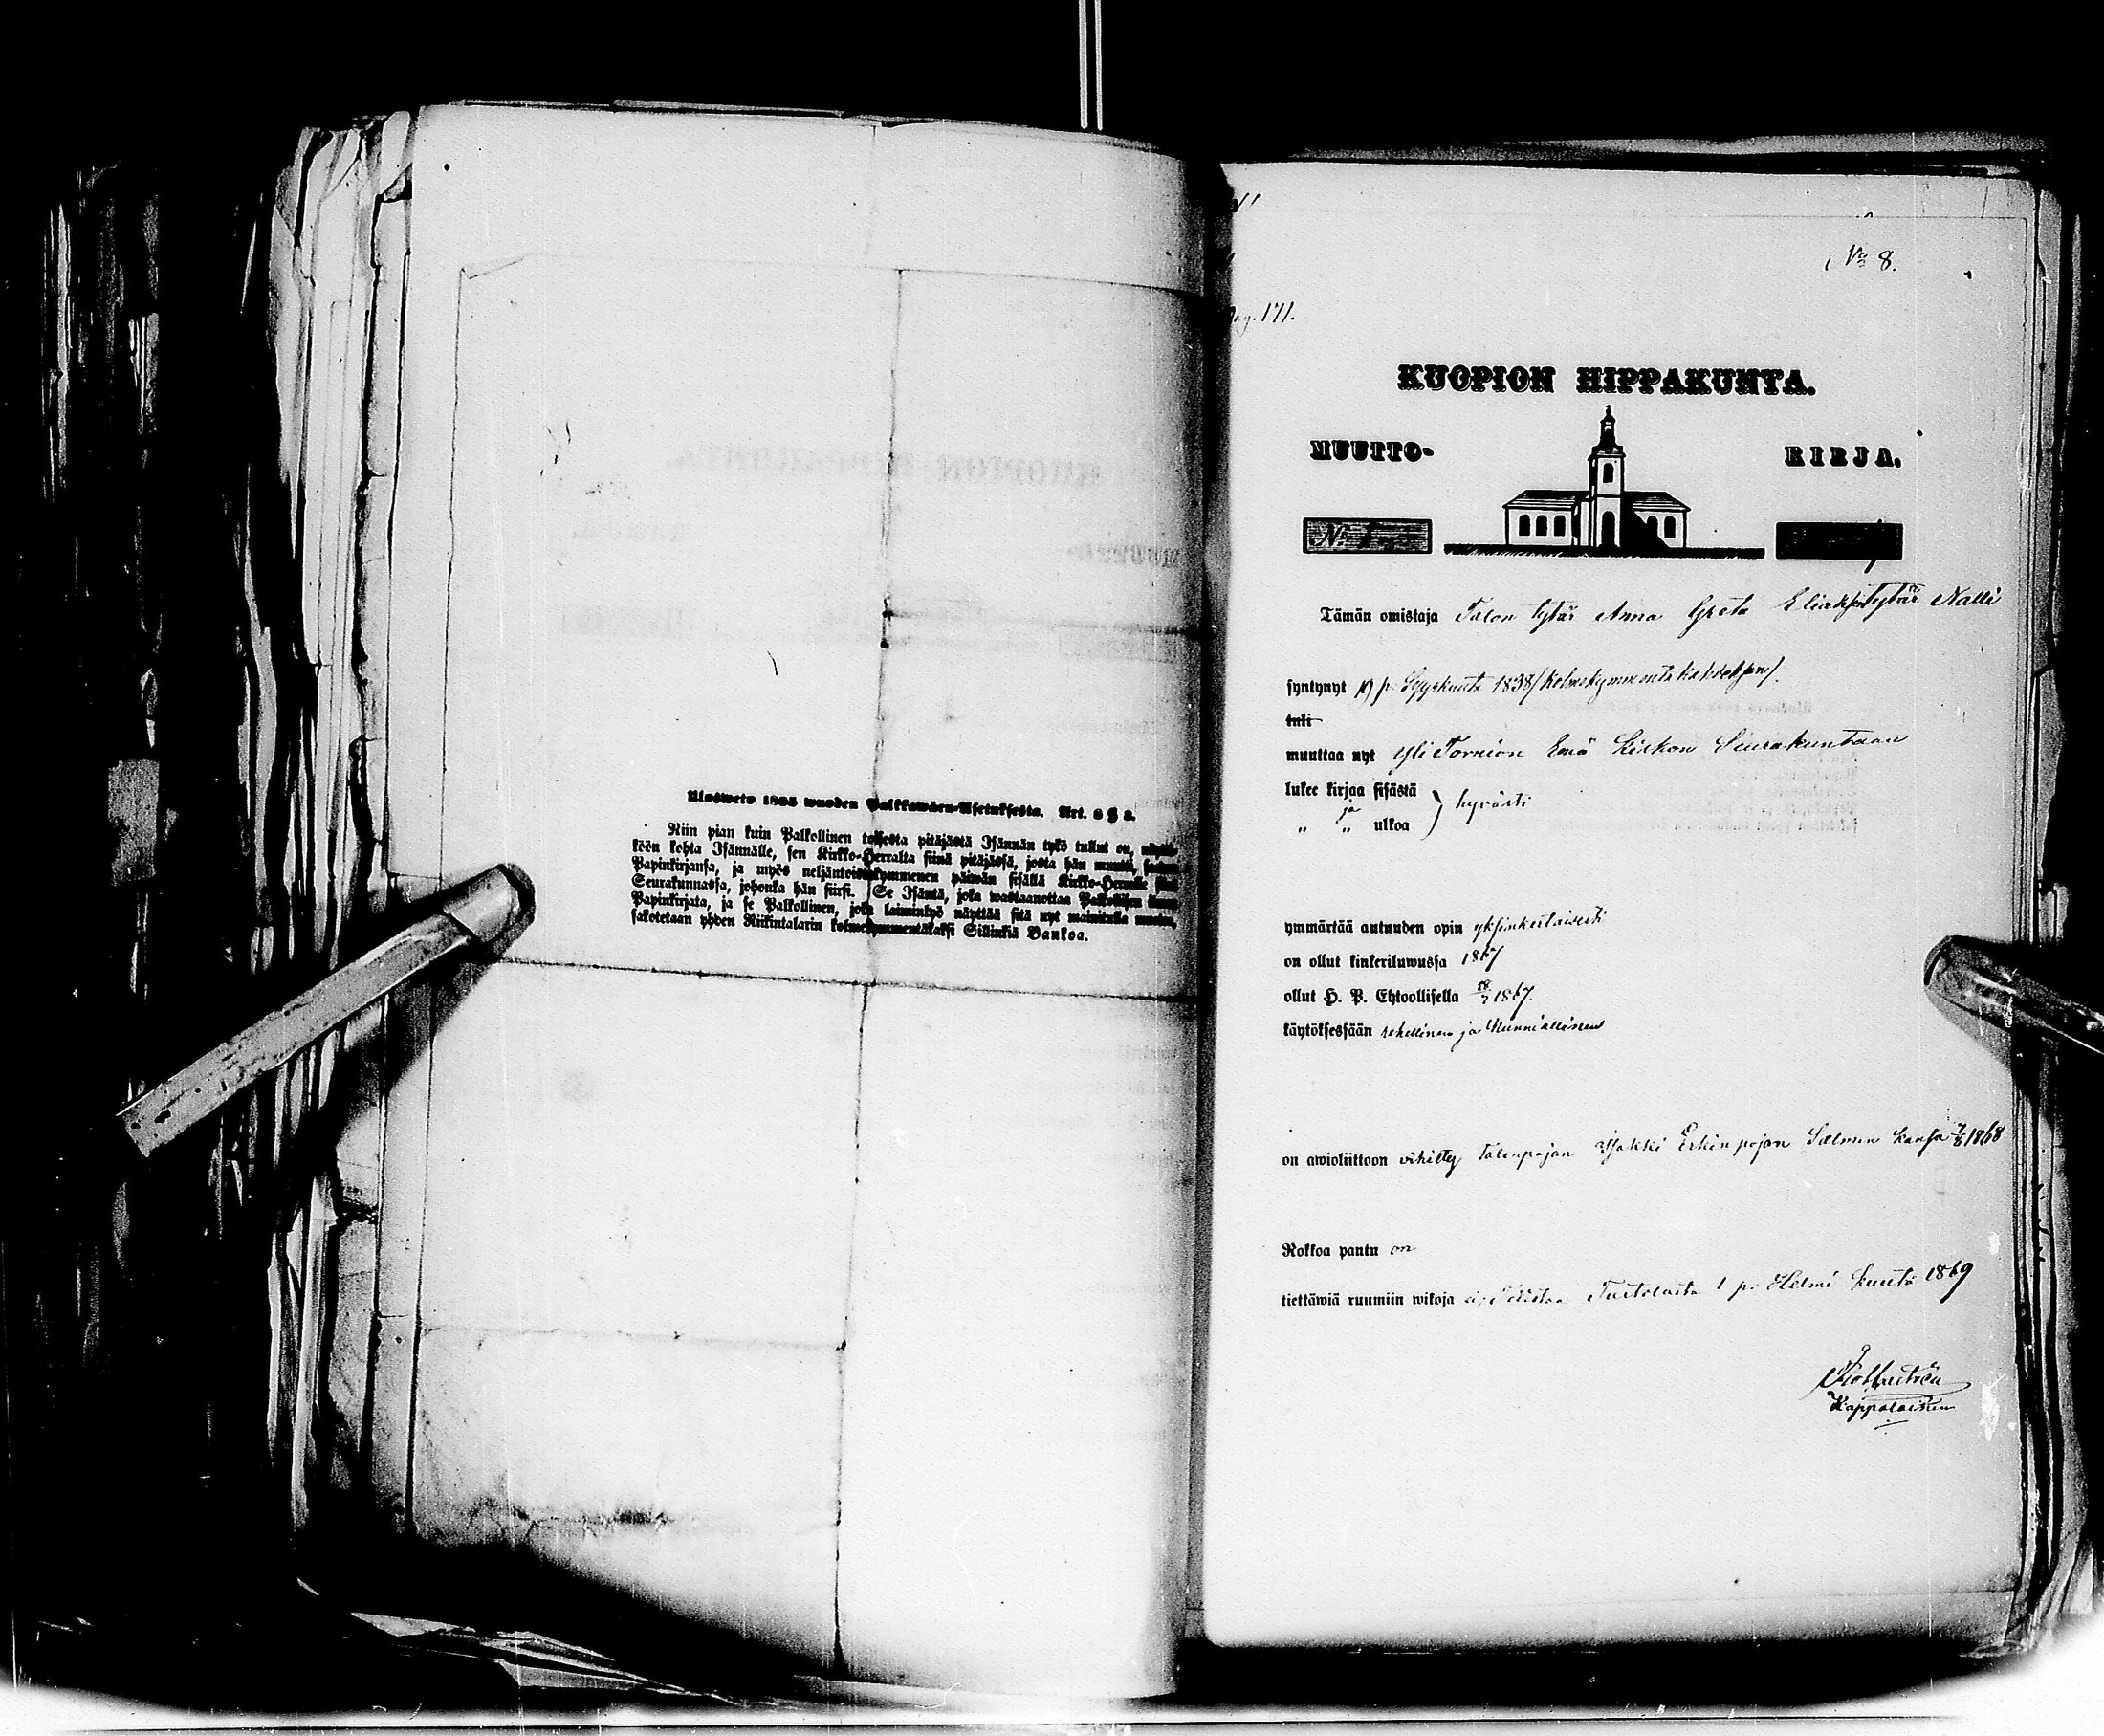 Ulosweto 1805 wuoden Palkkawäen-Asetuksesta. Art. 6 § 8.
Niin pian kuin Palkollinen toisesta pitäjästä Isännän tykö tullut on, näyttä-
köön kohta Isännälle, sen Kirkko-Herralta siinä pitäjässä, josta hän muutti, saadun
Papinkirjansa, ja myös neljäntoistakymmenen päiwän sisällä Kirkko-Herralle siinä
Seurakunnassa, johonka hän siirsi. Se Isäntä, joka wastaanottaa Palkollisen ilman
Papinkirjata, ja se Palkollinen, joka laiminlyö näyttää sitä nyt mainitulla muodon,
sakotetaan yhden Riikintalarin kolmekymmentäkaksi Sillinkiä Bankoa.
No 8.
pag. 171.
KUOPION HIPPAKUNTA.
MUUTTO- KIRJA.
No
Tämän omistaja Talon tytär Anna Greta Eliaksentytär Nalli
syntynyt 19 p. Syyskuuta 1838 /kolmekymmentäkahdeksan/.
tuli
muuttaa nyt Yli Tornion Emä Kirkon Seurakuntaan
lukee kirjaa sisästä
ja } hyvästi
„ „ ulkoa
ymmärtää autuuden opin yksinkertaisesti
on ollut kinkeriluwussa 1867
ollut H. P. Ehtoollisella 1867.
käytöksessään rehellinen ja kunniallinen
on awioliittoon vihitty Talonpojan Isakki Erkinpojan Salmen kansa 7/8 1868
Rokkoa pantu on
tiettäwiä ruumiin wikoja ei; Todistaa Turtolasta 1 p. Helmi kuuta 1869
Kappalainen